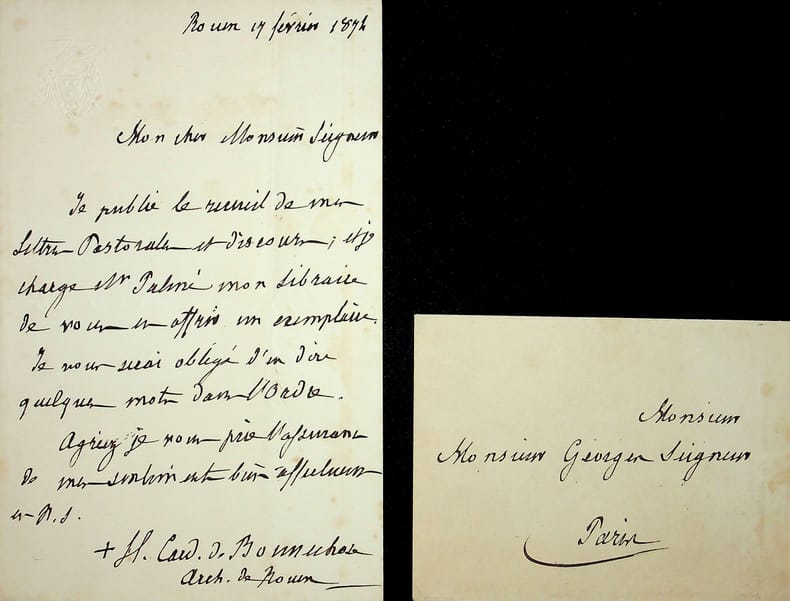 Rouen 17 février 1872
Mon cher Monsieur Seigneur
Je publie le recueil de mes
Lettres Pastorales et discours; et je
charge Mr Palmé mon Libraire
de vous en offrir un exemplaire.
Je vous serai obligé d'en dire
quelques mots dans l'Ordre.
Agréez je vous prie l'assurance
de mes sentiments bien affectueux
en N. S.
+ H. Card. de Bonnechose
Arch. de Rouen
Monsieur
Monsieur Georges Seigneur
Paris